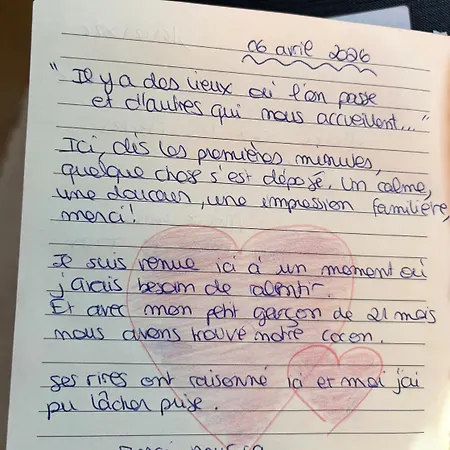 06 avril 2026
"Il y a des lieux où l'on passe
et d'autres qui nous accueillent..."
Ici, dès les premières minutes,
quelque chose s'est déposé. Un calme,
une douceur, une impression familière,
merci!
Je suis venue ici à un moment où
j'avais besoin de ralentir.
Et avec mon petit garçon de 21 mois
nous avons trouvé notre cocon.
Ses rires ont raisonné ici et moi j'ai
pu lâcher prise.